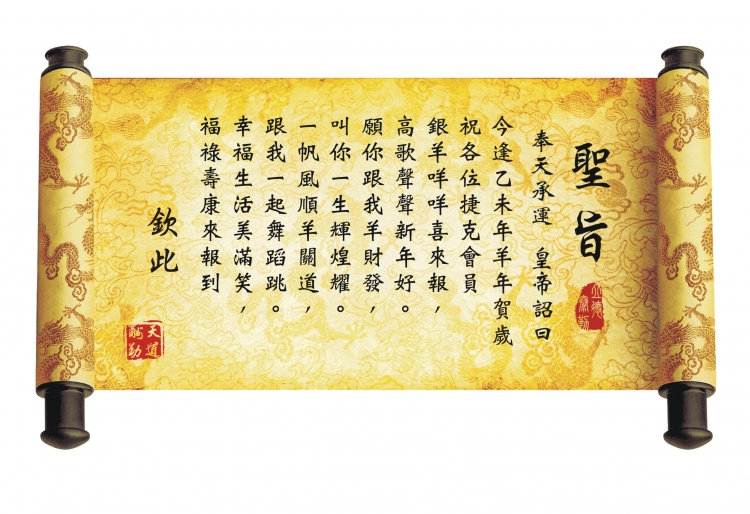 聖旨
奉天承運 皇帝詔曰
今逢乙未年羊年賀歲
祝各位捷克會員
銀羊咩咩喜來報，
高歌聲聲新年好。
願你跟我羊財發，
叫你一生輝煌耀。
一帆風順羊關道，
跟我一起舞蹈跳。
幸福生活美滿笑，
福祿壽康來報到
欽此
天道酬勤